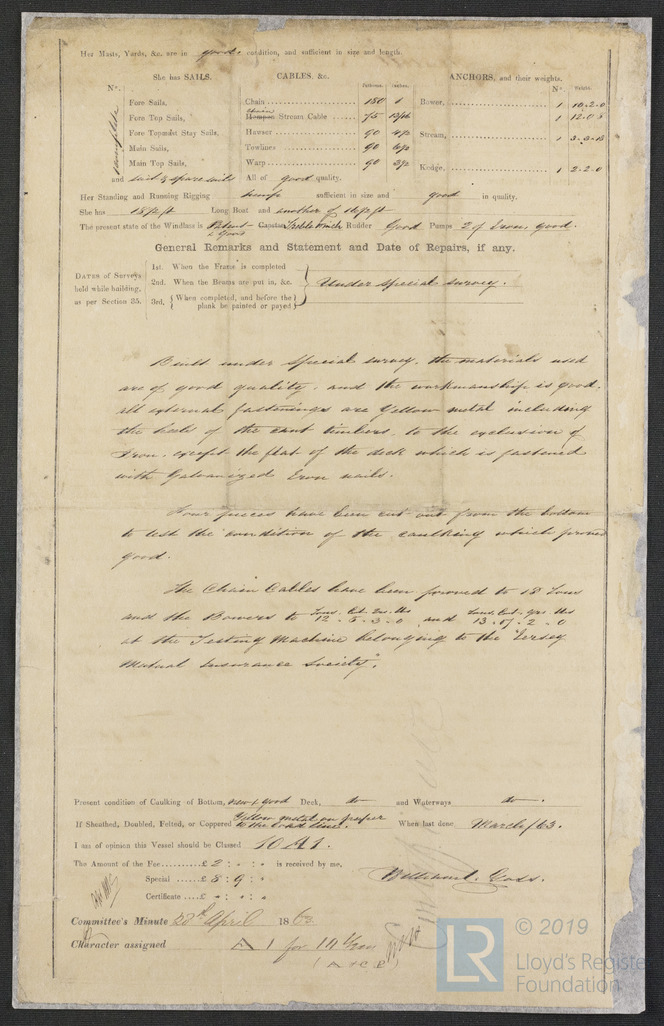 Her Masts, Yards, &c. are in good. condition, and sufficient in size and length.
She has SAILS. CABLES, &c. ANCHORS, and their weights.
N°. Fathoms. Inches. N°. Weights.
Fore Sails, Chain 180 1 Bower, 1
Fore Top Sails, Chain Hempen Stream Cable 75 1
Fore Topmast Stay Sails, Hawser 90 Stream, 1
Main Sails, Towlines 90
Main Top Sails, Warp 90 Kedge, 1 2-2-0
and spare sails All of good quality.
Her Standing and Running Rigging hemp sufficient in size and good in quality.
She has 18½ ft Long Boat and another of 16½ ft
The present state of the Windlass is Patent & Good Capstan Winch, Rudder Good Pumps 2 of Iron, good.
General Remarks and Statement and Date of Repairs, if any.
DATES of Surveys held while building, as per Section 35.
1st. When the Frame is completed
2nd. When the Beams are put in, &c.
3rd. When completed, and before the plank be painted or payed
Under special survey.
Built under special survey, the materials used
are of good quality, and the workmanship is good.
all external fastenings are Yellow metal including
the heels of the cant timbers, to the exclusion of
Iron, except the flat of the deck which is fastened
with Galvanized Iron nails.
Four pieces have been cut out from the bottom
to test the condition of the caulking which proved
good.
The Chain Cables have been proved to 18 Tons
and the Bowers to Tons. Cwt. Qrs. lbs 12-5-3-0 and Tons. Cwt. Qrs. lbs 2-0
at the Testing Machine belonging to the "Jersey
Mutual Insurance Society".
Present condition of Caulking of Bottom, new & good Deck, do and Waterways do.
If Sheathed, Doubled, Felted, or Coppered Yellow metal on paper to the load line. When last done March /63.
I am of opinion this Vessel should be Classed 10 A1.
The Amount of the Fee £2 : is received by me,
Special £5 : 9 :
Certificate £
Committee's Minute 28th April 186
Character assigned A 1 for 10 Years
© 2019
Lloyd's Register
Foundation
LR